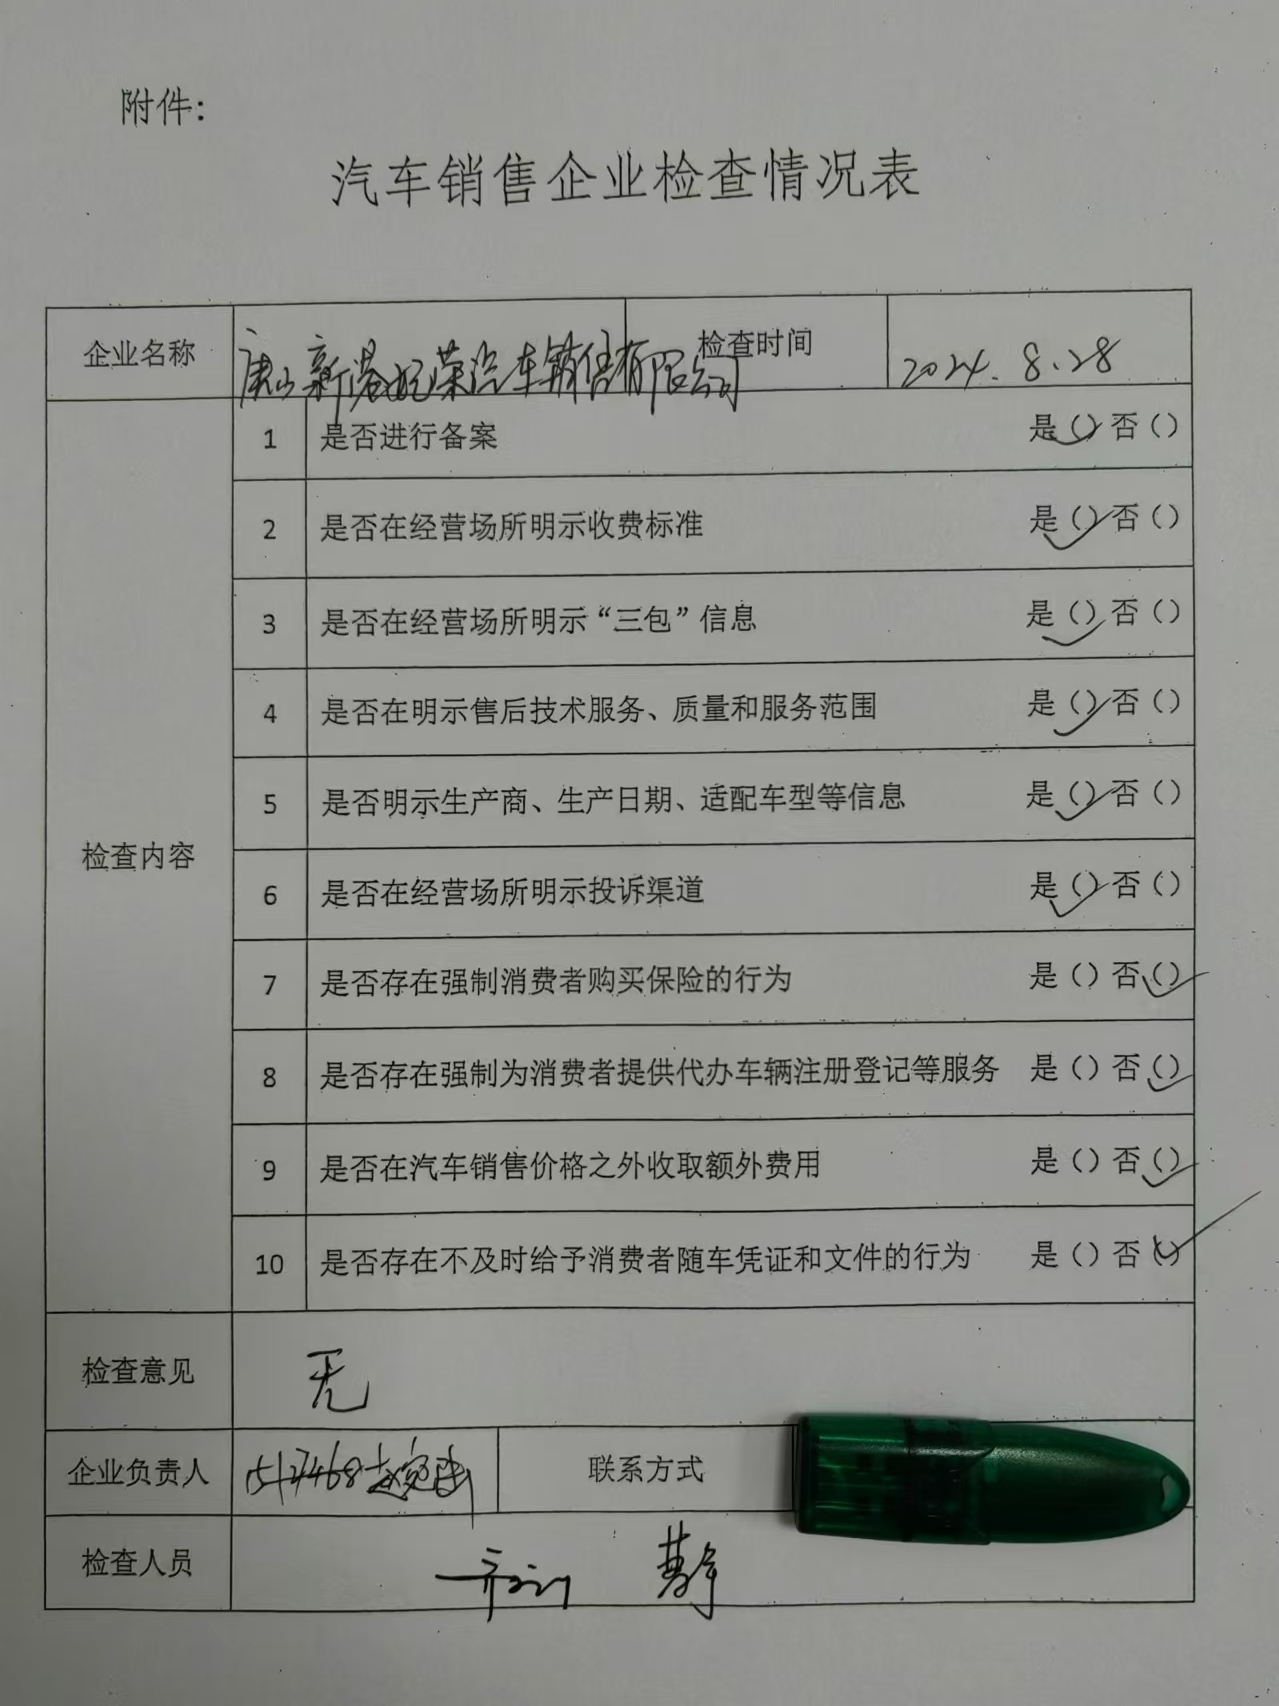 附件:
汽车销售企业检查情况表
企业名称 唐山新港 荣汽车销售有限公司 检查时间 2024.8.28
检查内容
1 是否进行备案 是(✓)否()
2 是否在经营场所明示收费标准 是(✓)否()
3 是否在经营场所明示“三包”信息 是(✓)否()
4 是否在明示售后技术服务、质量和服务范围 是(✓)否()
5 是否明示生产商、生产日期、适配车型等信息 是(✓)否()
6 是否在经营场所明示投诉渠道 是(✓)否()
7 是否存在强制消费者购买保险的行为 是()否(✓)
8 是否存在强制为消费者提供代办车辆注册登记等服务 是()否(✓)
9 是否在汽车销售价格之外收取额外费用 是()否(✓)
10 是否存在不及时给予消费者随车凭证和文件的行为 是()否(✓)
检查意见 无
企业负责人 联系方式
检查人员